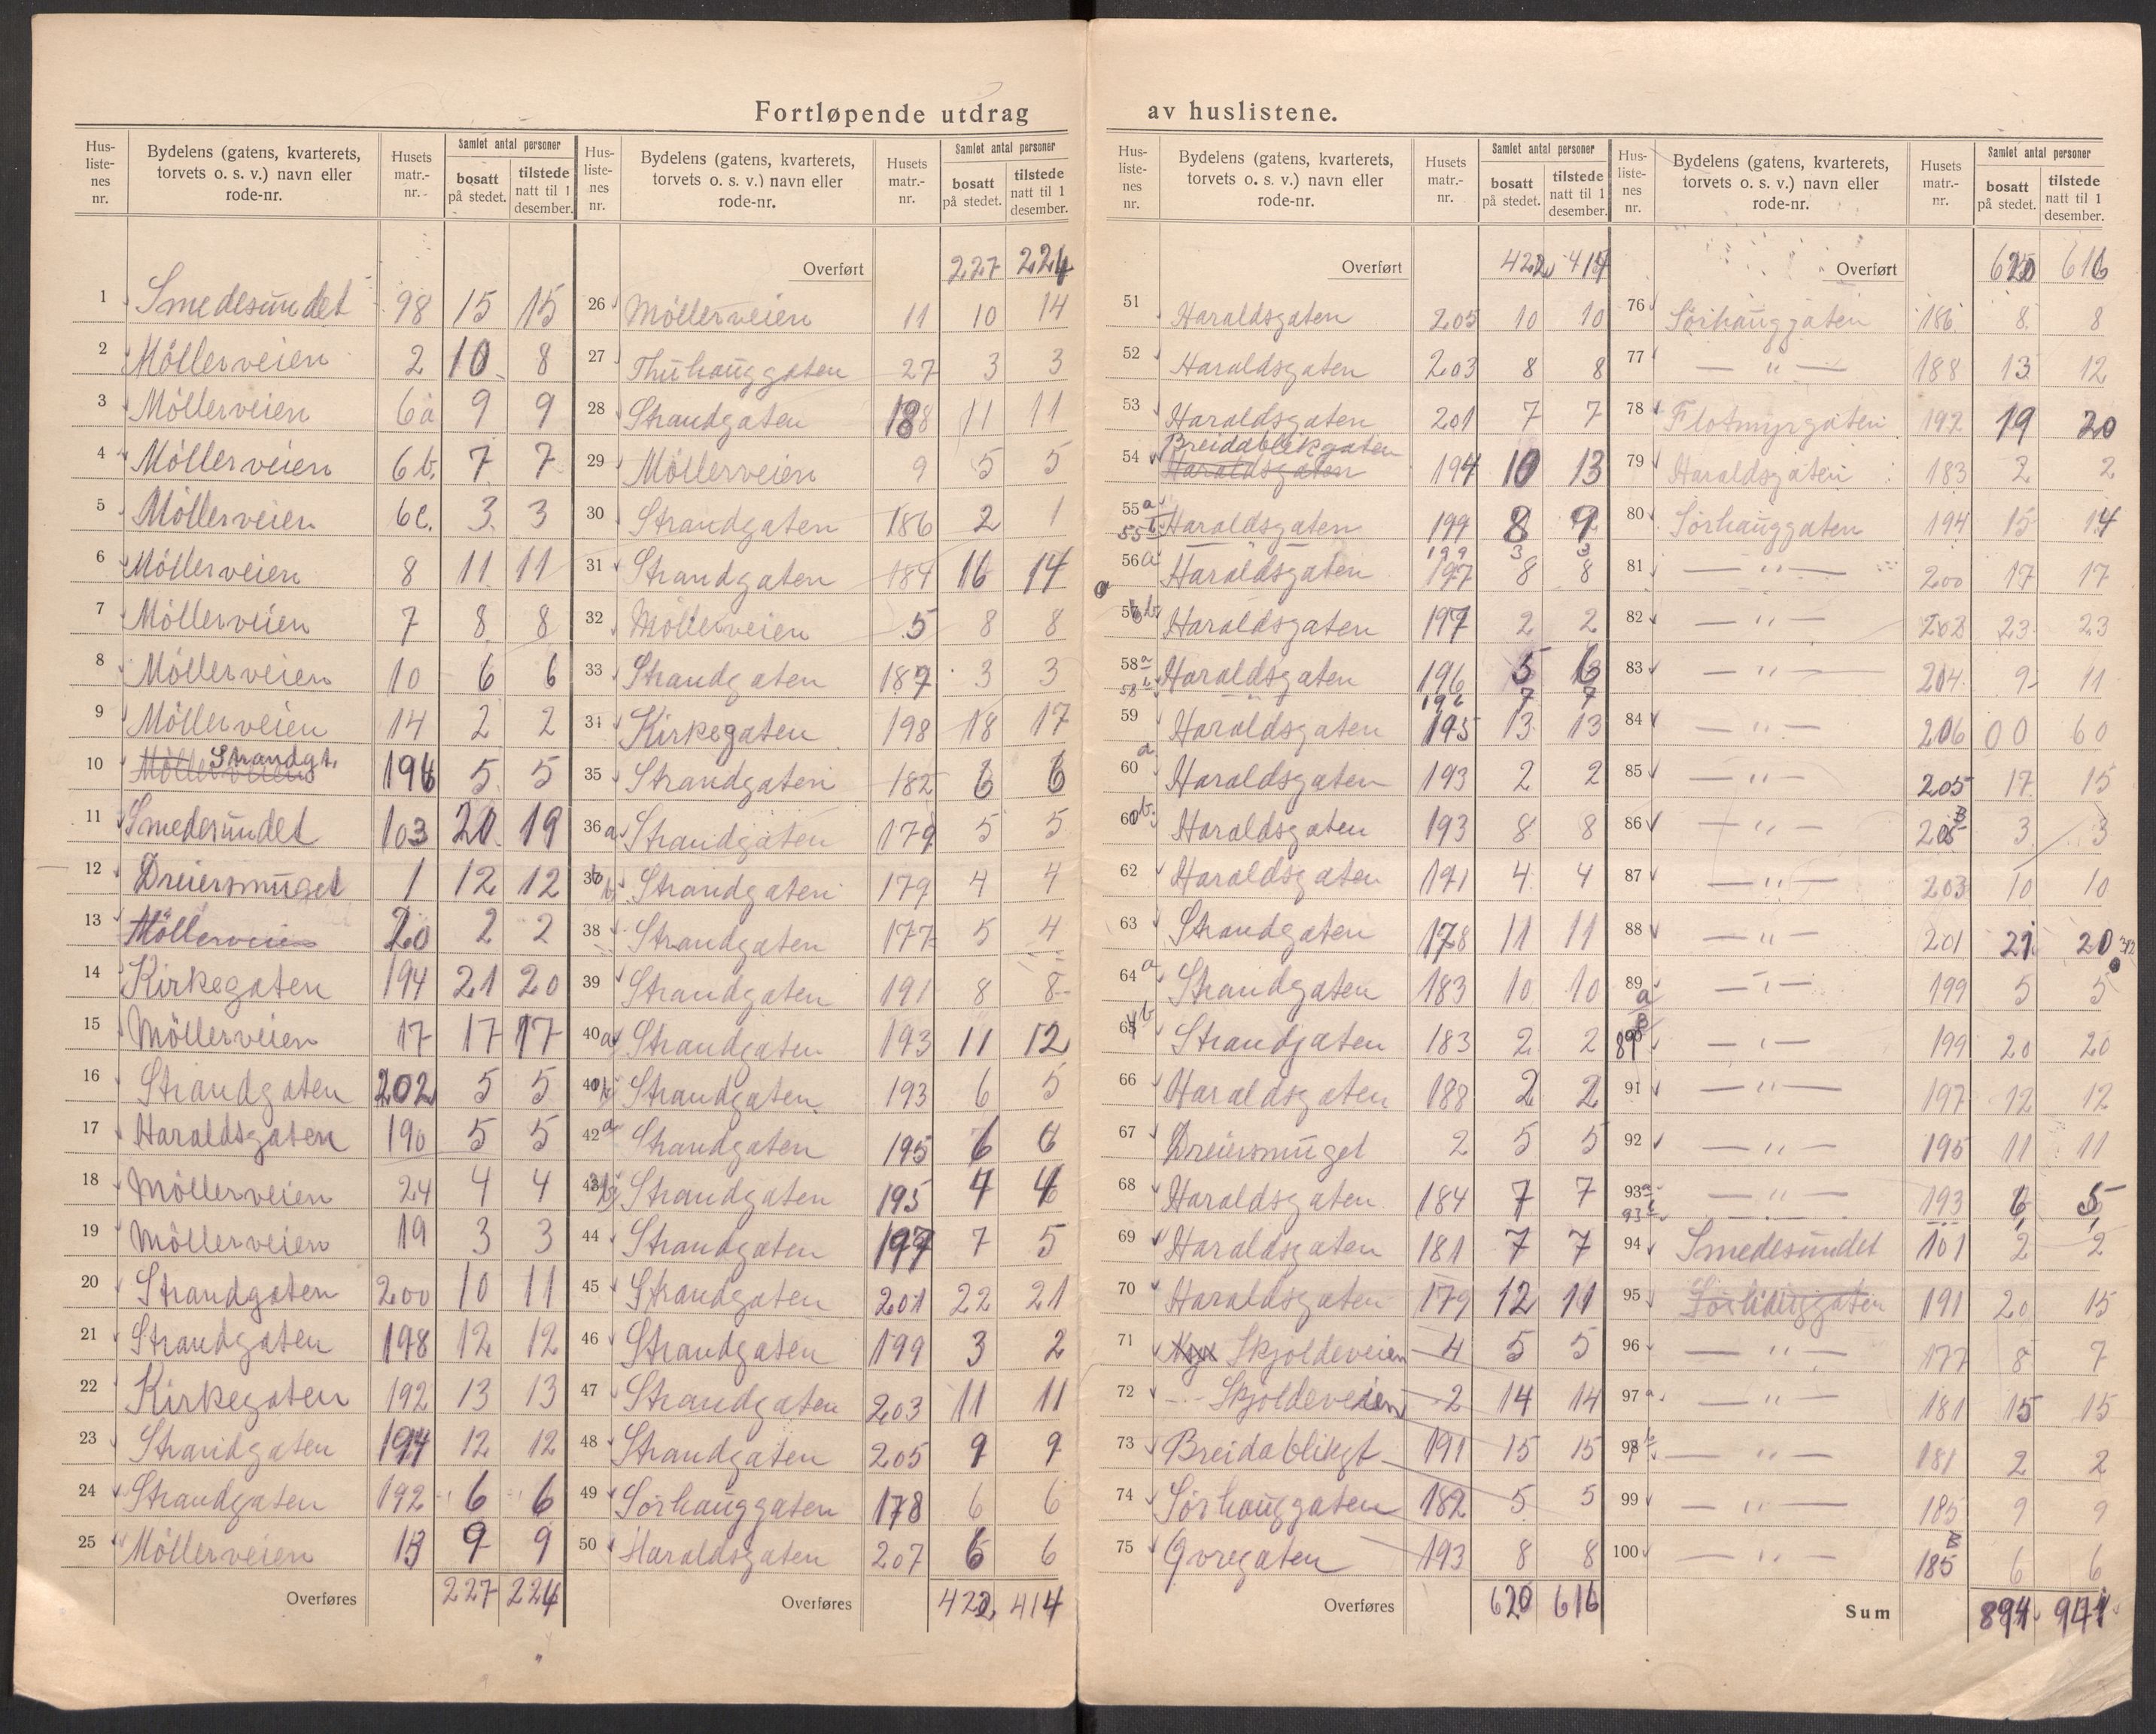 Fortløpende utdrag av huslistene.
Hus-liste-nes nr. | Bydelens (gatens, kvarterets, torvets o. s. v.) navn eller rode-nr. | Husets matr.-nr. | Samlet antal personer | bosatt på stedet. | tilstede natt til 1 desember.
1 Smedesundet 98 15 15
2 Möllerveien 2 10 8
3 Möllerveien 6a 9 9
4 Möllerveien 6b. 7 7
5 Möllerveien 6c. 3 3
6 Möllerveien 8 11 11
7 Möllerveien 7 8 8
8 Möllerveien 10 6 6
9 Möllerveien 14 2 2
10 Möllerveien Strandgt. 196 5 5
11 Smedesundet 103 20 19
12 Dreiersmuget 1 12 12
13 Möllerveien 20 2 2
14 Kirkegaten 194 21 20
15 Möllerveien 17 17 17
16 Strandgaten 202 5 5
17 Haraldsgaten 190 5 5
18 Möllerveien 24 4 4
19 Möllerveien 19 3 3
20 Strandgaten 200 10 11
21 Strandgaten 198 12 12
22 Kirkegaten 192 13 13
23 Strandgaten 194 12 12
24 Strandgaten 192 6 6
25 Möllerveien 13 9 9
Overføres 227 224
Hus-liste-nes nr. | Bydelens (gatens, kvarterets, torvets o. s. v.) navn eller rode-nr. | Husets matr.-nr. | Samlet antal personer | bosatt på stedet. | tilstede natt til 1 desember.
Overført 227 224
26 Möllerveien 11 10 14
27 Thuhauggaten 27 3 3
28 Strandgaten 188 11 11
29 Möllerveien 9 5 5
30 Strandgaten 186 2 1
31 Strandgaten 184 16 14
32 Möllerveien 5 8 8
33 Strandgaten 187 3 3
34 Kirkegaten 198 18 17
35 Strandgaten 182 6 6
36a Strandgaten 179 5 5
b Strandgaten 179 4 4
38 Strandgaten 177 5 4
39 Strandgaten 191 8 8
40a Strandgaten 193 11 12
40b Strandgaten 193 6 5
42a Strandgaten 195 6 6
b Strandgaten 195 4 4
44 Strandgaten 197 7 5
45 Strandgaten 201 22 21
46 Strandgaten 199 3 2
47 Strandgaten 203 11 11
48 Strandgaten 205 9 9
49 Sörhauggaten 178 6 6
50 Haraldsgaten 207 6 6
Overføres 422 414
Hus-liste-nes nr. | Bydelens (gatens, kvarterets, torvets o. s. v.) navn eller rode-nr. | Husets matr.-nr. | Samlet antal personer | bosatt på stedet. | tilstede natt til 1 desember.
Overført 422 414
51 Haraldsgaten 205 10 10
52 Haraldsgaten 203 8 8
53 Haraldsgaten 201 7 7
Breidablikgaten
54 Haraldsgaten 194 10 13
55a Haraldsgaten 199 8 9
55b 199 3 3
56a Haraldsgaten 197 8 8
b Haraldsgaten 197 2 2
58a Haraldsgaten 196 5 6
58b 196 7 7
59 Haraldsgaten 195 13 13
60a Haraldsgaten 193 2 2
60b Haraldsgaten 193 8 8
62 Haraldsgaten 191 4 4
63 Strandgaten 178 11 11
64a Strandgaten 183 10 10
b Strandgaten 183 2 2
66 Haraldsgaten 188 2 2
67 Dreiersmuget 2 5 5
68 Haraldsgaten 184 7 7
69 Haraldsgaten 181 7 7
70 Haraldsgaten 179 12 11
71 Skjoldeveien 4 5 5
72 Skjoldeveien 2 14 14
73 Breidablikgt 191 15 15
74 Sörhauggaten 182 5 5
75 Övregaten 193 8 8
Overføres 620 616
Hus-liste-nes nr. | Bydelens (gatens, kvarterets, torvets o. s. v.) navn eller rode-nr. | Husets matr.-nr. | Samlet antal personer | bosatt på stedet. | tilstede natt til 1 desember.
Overført 620 616
76 Sörhauggaten 186 8 8
77 — " — 188 13 12
78 Flotmyrgaten 192 19 20
79 Haraldsgaten 183 2 2
80 Sörhauggaten 194 15 14
81 — " — 200 17 17
82 — " — 202 23 23
83 — " — 204 9 11
84 — " — 206 00 60
85 — " — 205 17 15
86 — " — 205B 3 3
87 — " — 203 10 10
88 — " — 201 21 20
89a — " — 199 5 5
89B — " — 199 20 20
91 — " — 197 12 12
92 — " — 195 11 11
93a — " — 193 6 5
93b
94 Smedesundet 101 2 2
95 Sörhauggaten 191 20 15
96 — " — 177 8 7
97a — " — 181 15 15
98b — " — 181 2 2
99 — " — 185 9 9
100 — " — 185B 6 6
Sum 894 941